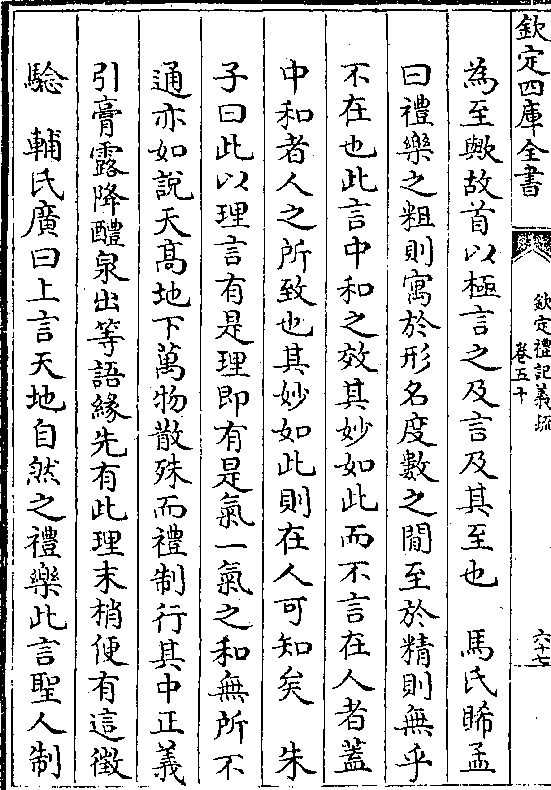 欽定四庫全書
欽定禮記義疏
卷五十
六十七
為至歟故首以極言之及言及其至也　馬氏睎孟
曰禮樂之粗則寓於形名度數之間至於精則無乎
不在也此言中和之效其妙如此而不言在人者葢
中和者人之所致也其妙如此則在人可知矣　朱
子曰此以理言有是理即有是氣一氣之和無所不
通亦如說天髙地下萬物散殊而禮制行其中正義
引膏露降醴泉出等語緣先有此理末梢便有這徵
驗　輔氏廣曰上言天地自然之禮樂此言聖人制